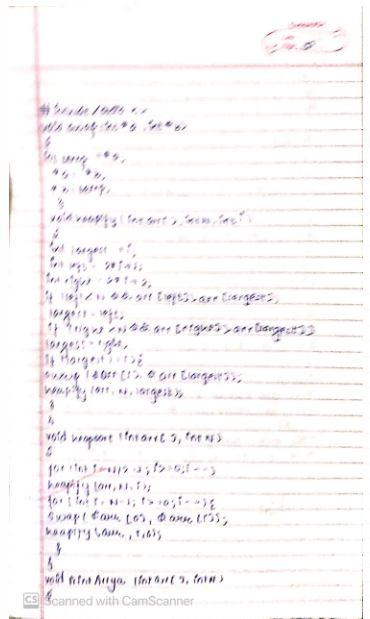 void swap(int *a, int *b)
{
int temp = *a;
*a = *b;
*b = temp;
}
void heapify(int arr[], int N, int i)
{
int largest = i;
int left = 2*i+1;
int right = 2*i+2;
if (left < N && arr[left] > arr[largest])
largest = left;
if (right < N && arr[right] > arr[largest])
largest = right;
if (largest != i) {
swap(&arr[i], &arr[largest]);
heapify(arr, N, largest);
}
}
void heapsort(int arr[], int N)
{
for (int i = N/2-1; i >= 0; i--)
heapify(arr, N, i);
for (int i = N-1; i >= 0; i--) {
swap(&arr[0], &arr[i]);
heapify(arr, i, 0);
}
}
void (int arr[], int N)
{
CS Scanned with CamScanner